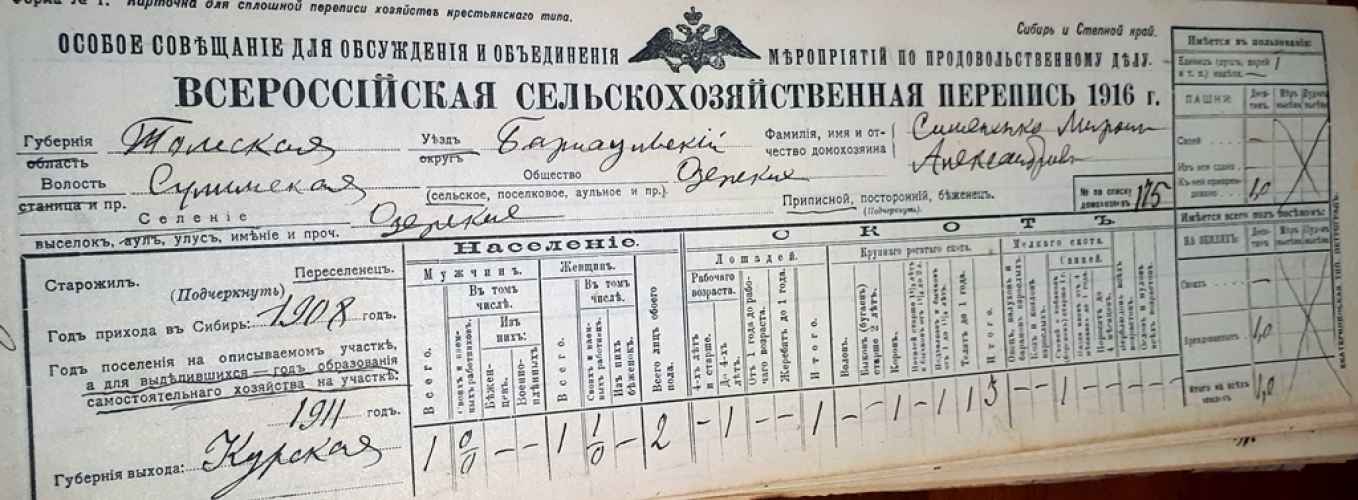 Форма № 1. Карточка для сплошной переписи хозяйствъ крестьянскаго типа.
Сибирь и Степной край.
ОСОБОЕ СОВѢЩАНІЕ ДЛЯ ОБСУЖДЕНІЯ И ОБЪЕДИНЕНІЯ МѢРОПРІЯТІЙ ПО ПРОДОВОЛЬСТВЕННОМУ ДѢЛУ.
ВСЕРОССІЙСКАЯ СЕЛЬСКОХОЗЯЙСТВЕННАЯ ПЕРЕПИСЬ 1916 г.
Губернія Томская Уѣздъ Барнаульскій Фамилія, имя и от-
область округъ чество домохозяина Миронъ
Александров
Волость Общество Озерки
станица и пр. (сельское, поселковое, аульное и пр.)
Приписной, посторонній, бѣженец.
(Подчеркнуть).
№ по списку домохозяевъ 175
Селеніе Озерки
выселокъ, аулъ, улусъ, имѣніе и проч.
Старожилъ. Переселенец.
(Подчеркнуть)
Годъ прихода въ Сибирь: 1908 годъ.
Годъ поселенія на описываемом участкѣ,
а для выдѣлившихся—годъ образованія
самостоятельнаго хозяйства на участкѣ:
1911 годъ.
Губернія выхода: Курская
Населеніе.
Мужчинъ.
Всего.
Въ том числѣ.
Своихъ и наем-ныхъ работниковъ.
Изъ нихъ:
Бѣжен-цевъ.
Военно-плѣнныхъ
Женщинъ.
Всего.
Въ томъ числѣ.
Своихъ и наем-ныхъ работницъ.
Изъ нихъ бѣженокъ.
Всего лицъ обоего пола.
1 0/0 — — 1 1/0 — 2
СКОТЪ.
Лошадей.
Рабочаго возраста.
4-хъ лѣтъ и старше.
До 4-хъ лѣтъ.
Отъ 1 года до рабо-чаго возраста.
Жеребятъ до 1 года.
Итого.
— 1 — — 1
Крупнаго рогатаго скота.
Воловъ.
Быковъ (бугаевъ) старше 2 лѣтъ.
Коровъ.
Телятъ до 1 года.
Итого.
— — 1 — 1 1 3
Мелкаго скота.
Свиней.
— — 1 — — —
Имѣется въ пользованіи:
ПАШНИ:
Своей —
1,0
Имѣется всего подъ посѣвомъ:
НА ЗЕМЛЯХЪ:
Своихъ —
Арендованныхъ 1,0
Итого на всѣхъ земляхъ 1,0
ЕКАТЕРИНГОФСКАЯ ТИП. ПЕТРОГРАДЪ.